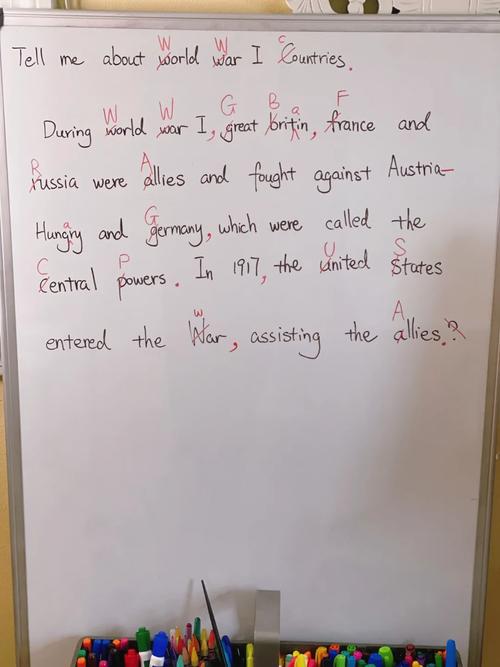 Tell me about World War I countries.
During World War I, Great Britain, France and
Russia were Allies and fought against Austria-
Hungary and Germany, which were called the
Central Powers. In 1917, the United States
entered the war, assisting the Allies.